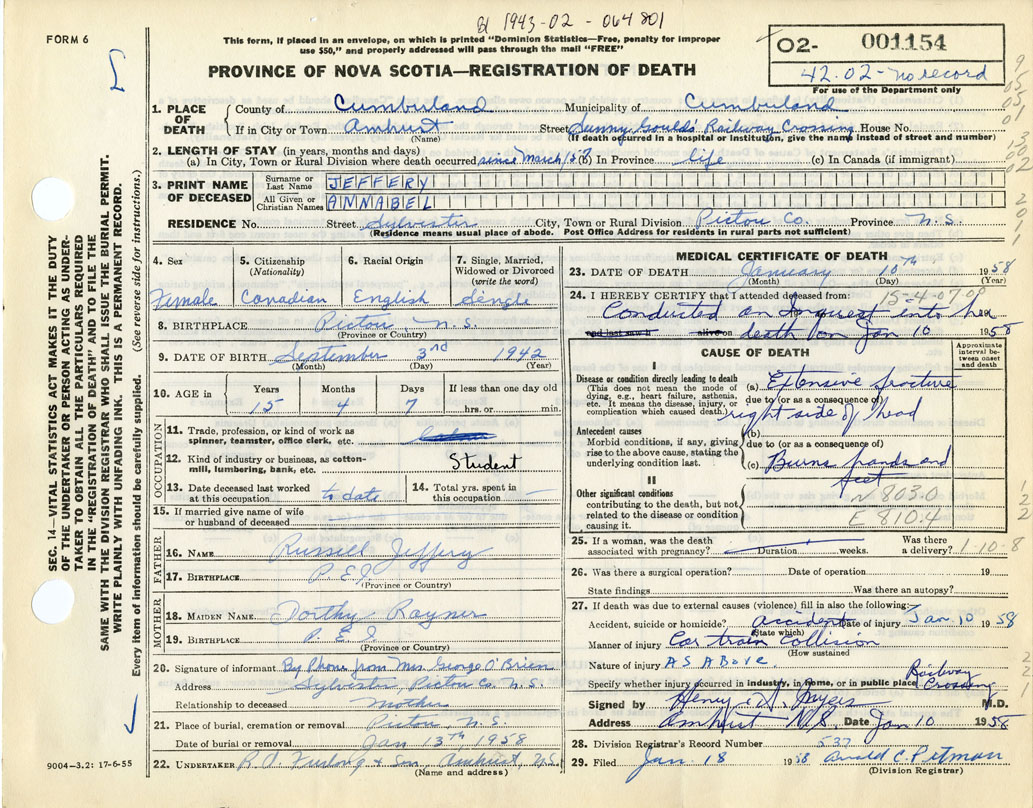 1943-02-064801
FORM 6
This form, if placed in an envelope, on which is printed "Dominion Statistics—Free, penalty for improper
use $50," and properly addressed will pass through the mail "FREE"
02- 001154
42.02-no record
For use of the Department only
PROVINCE OF NOVA SCOTIA—REGISTRATION OF DEATH
1. PLACE OF DEATH County of Cumberland Municipality of Cumberland
If in City or Town Amherst Street Sunny Gould's Railway Crossing House No.
(Name) (If death occurred in a hospital or institution, give the name instead of street and number)
2. LENGTH OF STAY (in years, months and days)
(a) In City, Town or Rural Division where death occurred since March/58 (b) In Province life (c) In Canada (if immigrant)
3. PRINT NAME OF DECEASED Surname or Last Name JEFFERY
All Given or Christian Names ANNABEL
RESIDENCE No. Street Sylvester City, Town or Rural Division Pictou Co. Province N.S.
(Residence means usual place of abode. Post Office Address for residents in rural parts not sufficient)
4. Sex Female
5. Citizenship (Nationality) Canadian
6. Racial Origin English
7. Single, Married, Widowed or Divorced (write the word) Single
8. BIRTHPLACE Pictou N.S.
(Province or Country)
9. DATE OF BIRTH September 3rd 1942
(Month) (Day) (Year)
10. AGE in Years 15 Months 4 Days 7 If less than one day old hrs. or min.
OCCUPATION
11. Trade, profession, or kind of work as spinner, teamster, office clerk, etc.
12. Kind of industry or business, as cotton-mill, lumbering, bank, etc. Student
13. Date deceased last worked at this occupation to date
14. Total yrs. spent in this occupation —
15. If married give name of wife or husband of deceased
FATHER
16. NAME Russell Jeffery
17. BIRTHPLACE P.E.I.
(Province or Country)
MOTHER
18. MAIDEN NAME Dorthy Rayner
19. BIRTHPLACE P.E.I.
(Province or Country)
20. Signature of informant By Phone from Mrs. George O'Brien
Address Sylvester, Pictou Co. N.S.
Relationship to deceased Mother
21. Place of burial, cremation or removal Pictou N.S.
Date of burial or removal Jan 13th, 1958
22. UNDERTAKER R.A. Furlong & Son, Amherst, N.S.
(Name and address)
9004—3.2: 17-6-55
MEDICAL CERTIFICATE OF DEATH
23. DATE OF DEATH January 10th 1958
(Month) (Day) (Year)
24. I HEREBY CERTIFY that I attended deceased from: 15-4-07-09
Conducted an Inquest into her 19
and last saw h alive on death on Jan 10 1958
CAUSE OF DEATH
Approximate interval between onset and death
I
Disease or condition directly leading to death
(This does not mean the mode of dying, e.g., heart failure, asthenia, etc. It means the disease, injury, or complication which caused death.)
(a) Extensive fracture
due to (or as a consequence of)
right side of head
Antecedent causes
Morbid conditions, if any, giving rise to the above cause, stating the underlying condition last.
(b)
due to (or as a consequence of)
(c) Burns hands and
feet
II
Other significant conditions contributing to the death, but not related to the disease or condition causing it.
N 803.0
E 810.4
25. If a woman, was the death associated with pregnancy? Duration weeks. Was there a delivery? 1-10-8
26. Was there a surgical operation? Date of operation 19
State findings Was there an autopsy?
27. If death was due to external causes (violence) fill in also the following:
Accident, suicide or homicide? Accident Date of injury Jan. 10 1958
(State which)
Manner of injury Car train Collision
(How sustained
Nature of injury AS ABOVE.
Specify whether injury occurred in industry, in home, or in public place Railway Crossing
Signed by Henry M.D.
Address Amherst N.S. Date Jan 10 1958
28. Division Registrar's Record Number 537
29. Filed Jan. 18 1958 Arnold C. Pitman
(Division Registrar)
SEC. 14—VITAL STATISTICS ACT MAKES IT THE DUTY
OF THE UNDERTAKER OR PERSON ACTING AS UNDER-
TAKER TO OBTAIN ALL THE PARTICULARS REQUIRED
IN THE "REGISTRATION OF DEATH" AND TO FILE THE
SAME WITH THE DIVISION REGISTRAR WHO SHALL ISSUE THE BURIAL PERMIT.
WRITE PLAINLY WITH UNFADING INK. THIS IS A PERMANENT RECORD.
Every item of information should be carefully supplied. (See reverse side for instructions.)